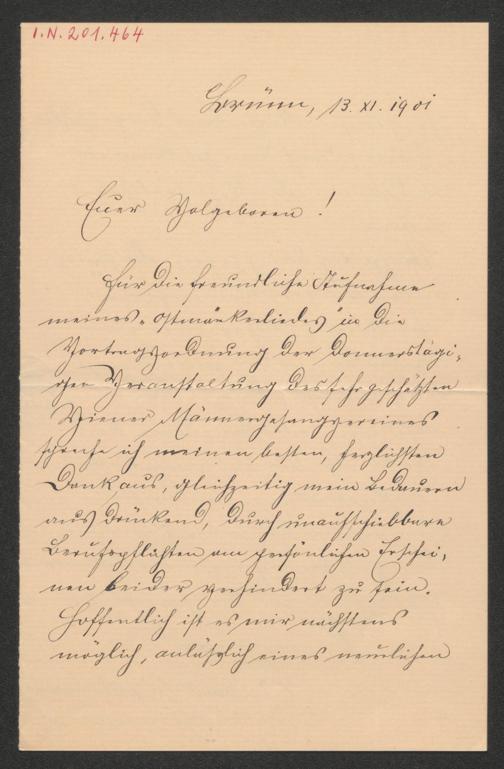 I.N. 201.464
Brünn, 13. XI. 1901
Euer Wolgeboren!
Für die freundliche Aufnahme
meines „Ostmärkerliedes" in die
Vortragsordnung der donnerstägi-
gen Veranstaltung des sehr geschätzten
Wiener Männergesangvereines
spreche ich meinen besten, herzlichsten
Dank aus, gleichzeitig mein Bedauern
ausdrückend, durch unaufschiebbare
Berufspflichten am persönlichen Erschei-
nen leider verhindert zu sein.
Hoffentlich ist es mir nächstens
möglich, anläßlich eines neuerlichen